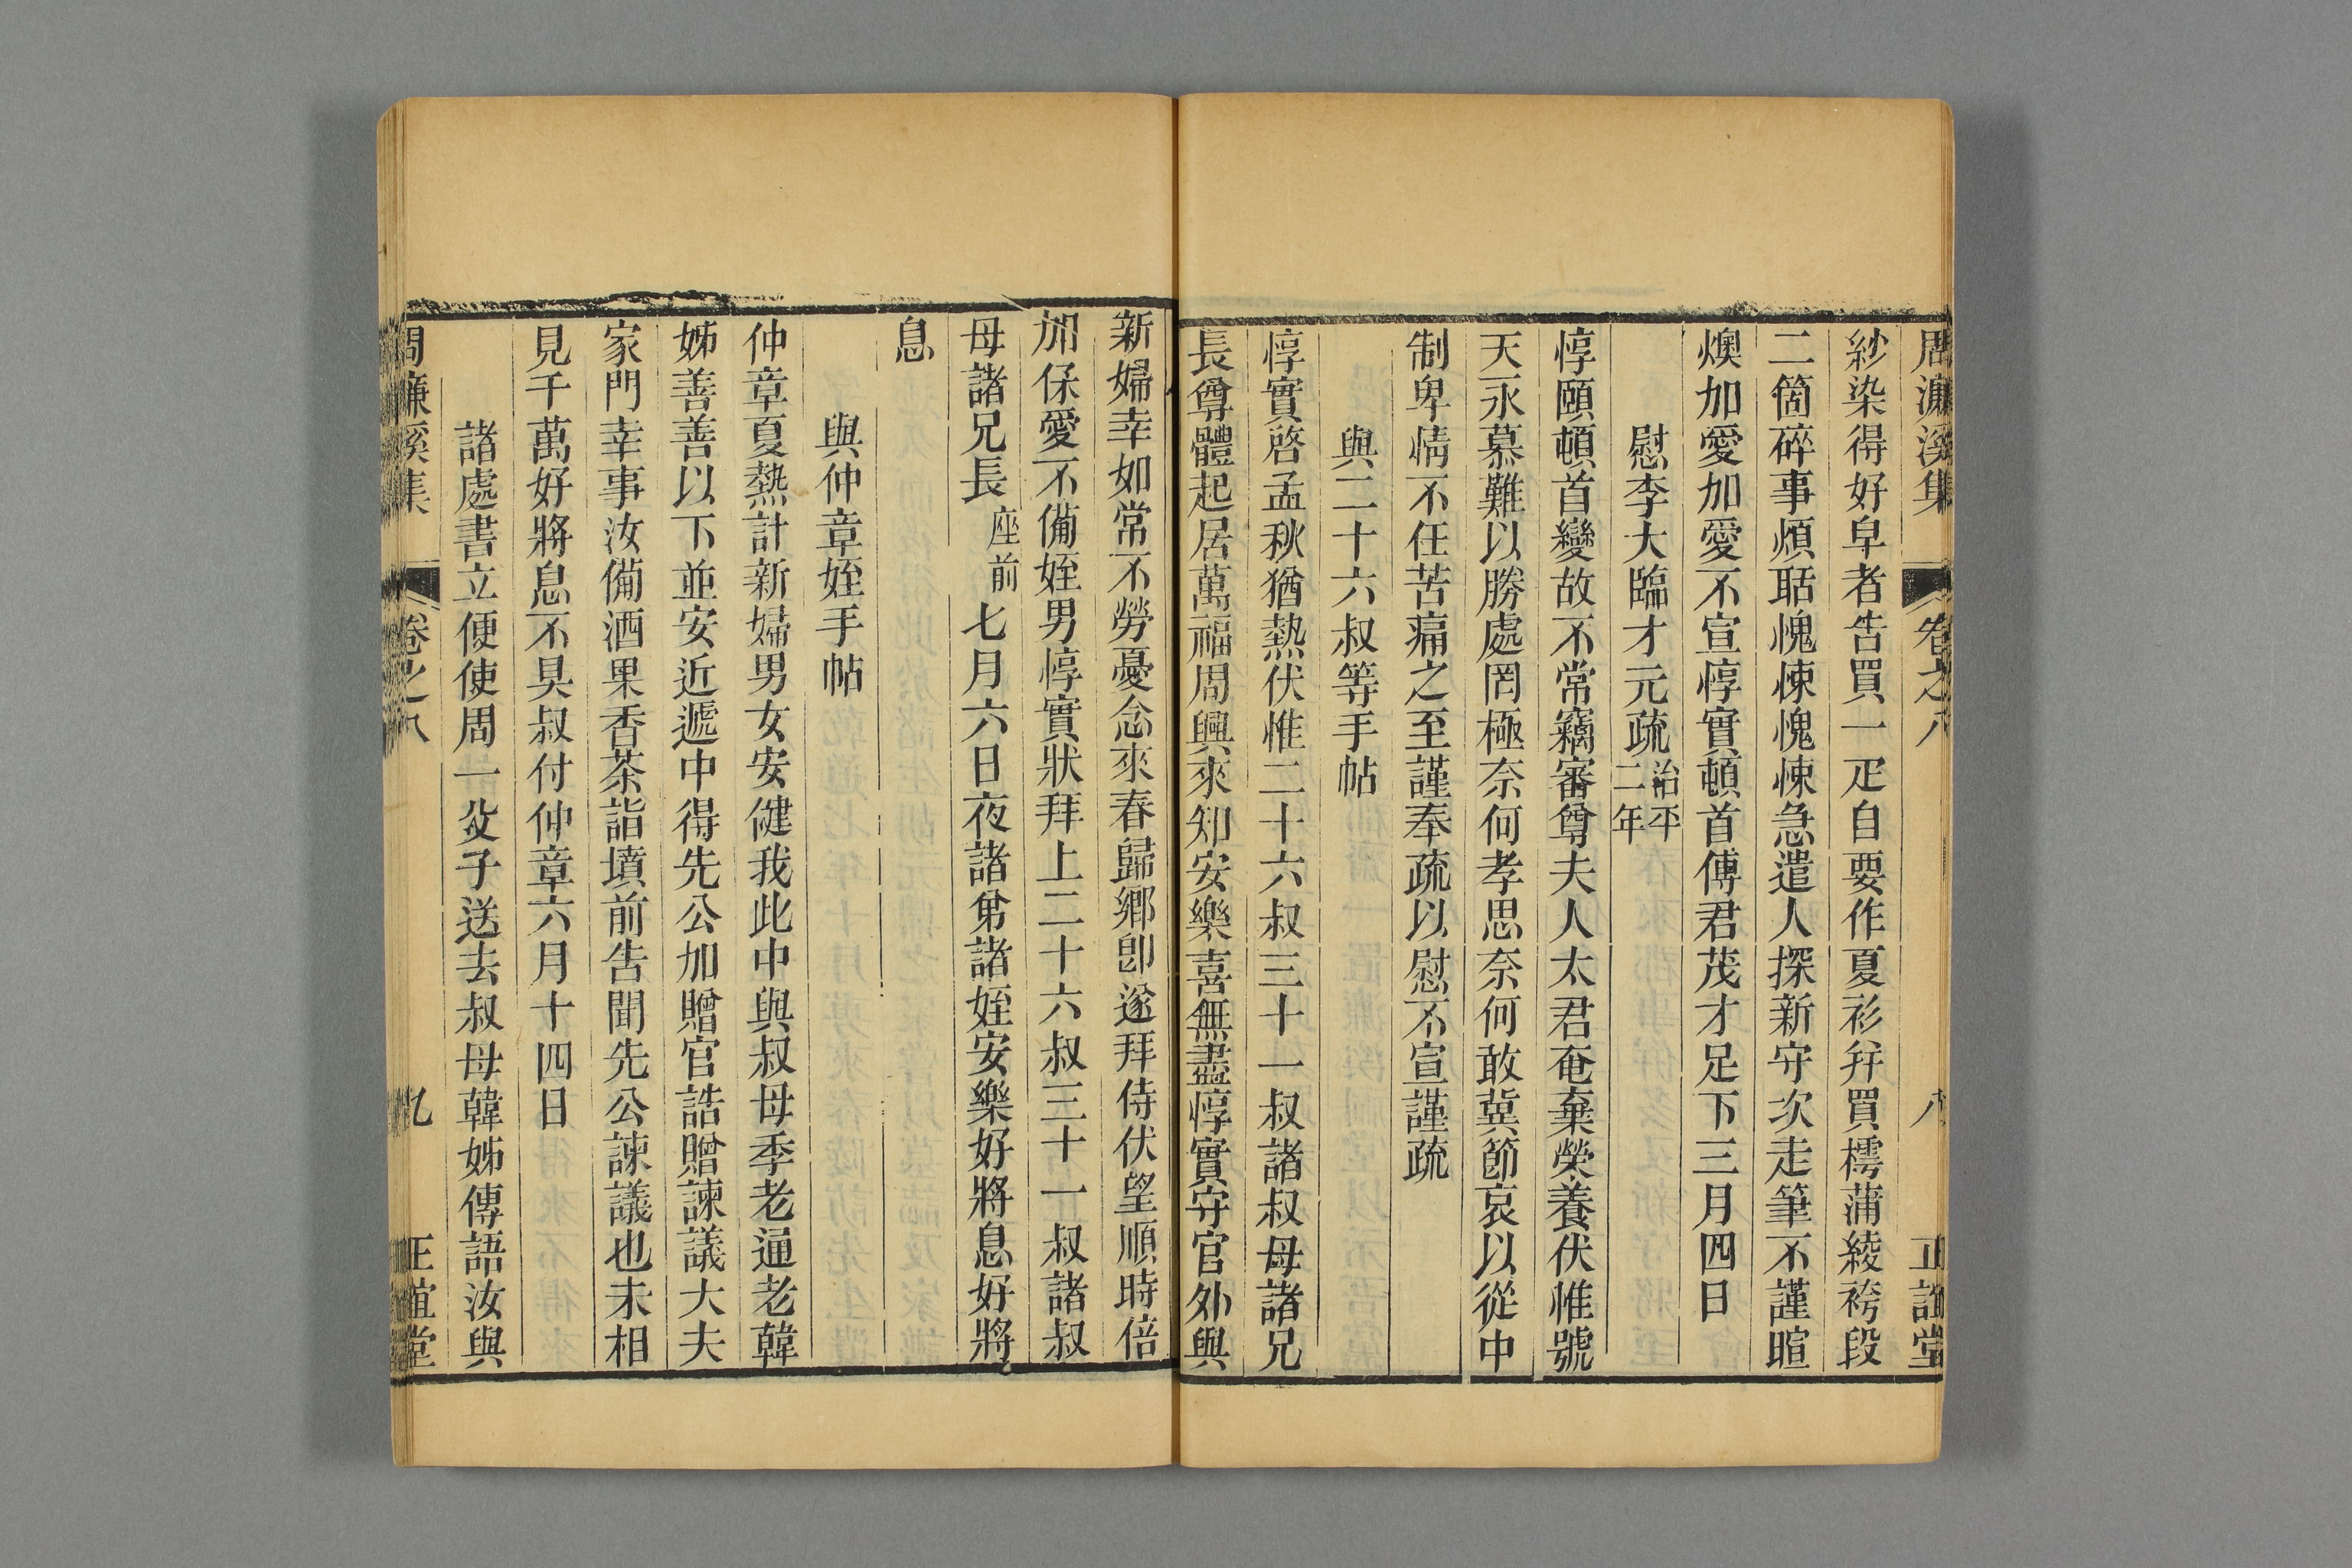 周濂溪集 卷之八 八 正誼堂
紗染得好皁者告買一疋自要作夏衫并買樗蒲綾袴段
二箇碎事煩聒愧悚愧悚急遣人探新守次走筆不謹暄
燠加愛加愛不宣惇實頓首傅君茂才足下三月四日
慰李大臨才元疏治平二年
惇頤頓首變故不常竊審尊夫人太君奄棄榮養伏惟號
天永慕難以勝處罔極奈何孝思奈何敢冀節哀以從中
制卑情不任苦痛之至謹奉疏以慰不宣謹疏
與二十六叔等手帖
惇實啓孟秋猶熱伏惟二十六叔三十一叔諸叔母諸兄
長尊體起居萬福周興來知安樂喜無盡惇實守官外與
新婦幸如常不勞憂念來春歸鄉卽遂拜侍伏望順時倍
加保愛不備姪男惇實狀拜上二十六叔三十一叔諸叔
母諸兄長座前七月六日夜諸弟諸姪安樂好將息好將
息
與仲章姪手帖
仲章夏熱計新婦男女安健我此中與叔母季老通老韓
姊善善以下並安近遞中得先公加贈官誥贈諫議大夫
家門幸事汝備酒果香茶詣墳前告聞先公諫議也未相
見千萬好將息不具叔付仲章六月十四日
諸處書立便使周一父子送去叔母韓姊傳語汝與
周濂溪集 卷之八 九 正誼堂